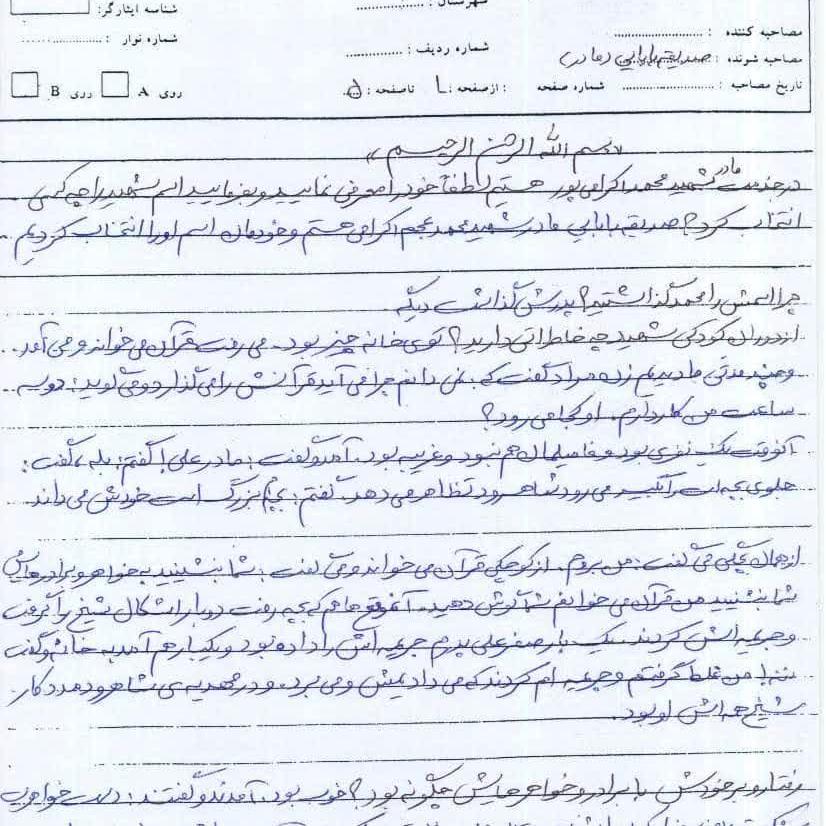 شهرستان :
شناسه ایثارگر:
مصاحبه کننده :
شماره نوار :
مصاحبه شونده : صدیقه بابایی (مادر)
شماره ردیف :
تاریخ مصاحبه : شماره صفحه : از صفحه : ۱ تا صفحه : ۵
روی A روی B
«بسم الله الرحمن الرحیم»
در خدمت مادر شهید محمد اکرامی پور هستیم لطفاً خود را معرفی نمایید و بفرمایید اسم شهید را چه کسی
انتخاب کرد؟ صدیقه بابایی مادر شهید محمد اکرامی هستم و خودمان اسم او را انتخاب کردیم
چرا اسمش را محمد گذاشتید؟ پدرش گذاشت دیگه.
از دوران کودکی شهید چه خاطراتی دارید؟ توی خانه چیز بود. می رفت قرآن می خواند و می آمد.
و چند مدتی ما دیدیم زن مراد گفت که: نمی دانم چرا می آید قرآنش را می گذارد و می گوید: دو سه
ساعت من کار دارم. او کجا می رود؟
آنوقت یک نفری بود و فامیلمان هم نبود و غریبه بود. آمد و گفت: مادر علی! گفتم: بله، گفت:
جلوی بچه ات را بگیر می رود شاهرود تظاهر می دهد. گفتم: بچه ام بزرگ است خودش می داند
از همان بچگی می گفت: من بروم. از کوچکی قرآن می خواند و می گفت: شما بنشینید به خواهر و برادرهایش
شما بنشینید من قرآن می خوانم شما گوش دهید. آنموقع ها هم که بچه رفت دوبار اشکال شیخ را گرفت
و جریمه اش کردند. یک بار صفر علی پدرم جریمه اش را داده بود و یکبار هم آمد به خانه و گفت
ننه! من غلط گرفتم و جریمه ام کردند که می دادیمش و می برد. و در مهدیه ی شاهرود مددکار
شیخ بود.
رفتار و برخوردش با برادر و خواهرهایش چگونه بود؟ خوب بود. آمدند و گفتند: دست خواهرت